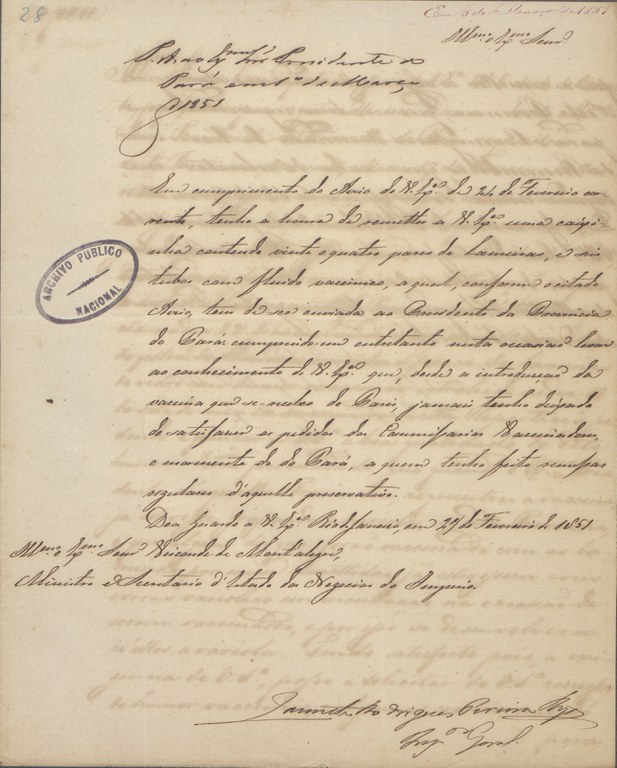 28
Em 6 de Março de 1851
Illmo. Exmo. Senr.
Presidente do
Pará em 1º de Março
1851
ARCHIVO PUBLICO
NACIONAL
Em cumprimento do Aviso de V. Exª. de 24 de Fevereiro cor-
rente, tenho a honra de remetter a V. Exª. uma caixi-
nha contendo vinte e quatro pares de laminas, e seis
tubos com fluido vaccinico, a qual, conforme o citado
Aviso, tem de ser enviada ao Presidente da Provincia
do Pará: cumprindo-me entretanto nesta occasião levar
ao conhecimento de V. Exª. que, desde a introducção da
vaccina que se recebeo de Paris, jamais tenho deixado
de satisfazer os pedidos dos Commissarios Vaccinadores,
e mormente do do Pará, a quem tenho feito remessas
regulares d'aquelle preservativo.
Deos Guarde a V. Exª. Rio de Janeiro, em 27 de Fevereiro de 1851
Illmo. Exmo. Senr. Visconde de Mont'alegre,
Ministro e Secretario d'Estado dos Negocios do Imperio.
Rodrigues Pereira
Geral.